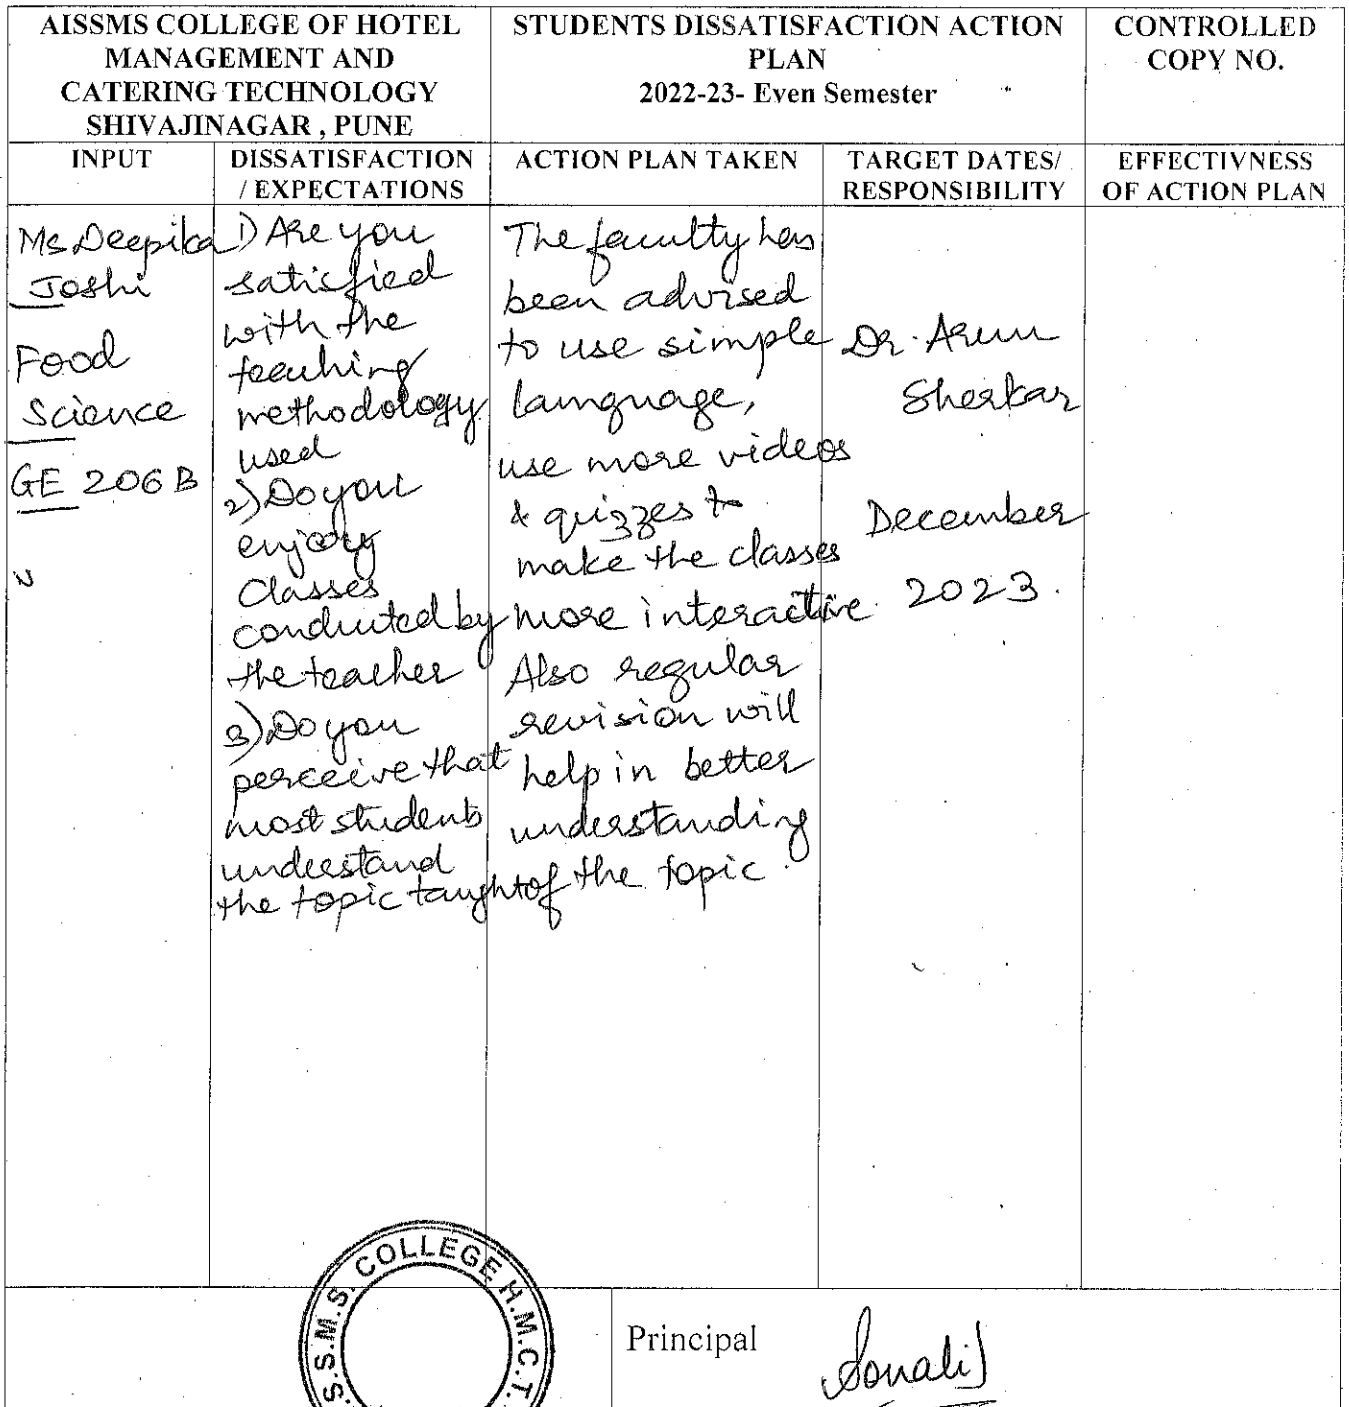 AISSMS COLLEGE OF HOTEL
MANAGEMENT AND
CATERING TECHNOLOGY
SHIVAJINAGAR , PUNE
STUDENTS DISSATISFACTION ACTION
PLAN
2022-23- Even Semester
CONTROLLED
COPY NO.
INPUT
DISSATISFACTION
/ EXPECTATIONS
ACTION PLAN TAKEN
TARGET DATES/
RESPONSIBILITY
EFFECTIVNESS
OF ACTION PLAN
Ms Deepika
Joshi
Food
Science
GE 206 B
1) Are you
saticfied
with the
teaching
methodology
used
2) Do you
enjoy
Classes
conducted by
the teacher
3) Do you
perceive that
most students
understand
the topic taught
The faculty has
been advised
to use simple
language,
use more videos
& quizzes to
make the classes
more interactive.
Also regular
revision will
help in better
understanding
of the topic.
Dr. Arun
Sherkar
December
2023.
S.S.M.S. COLLEGE H.M.C.T.
Principal
SonaliJ